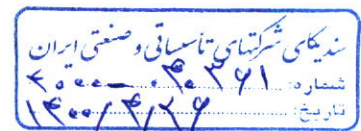 سندیکای شرکتهای تأسیساتی و صنعتی ایران
شماره:
تاریخ: ۱۴۰۰/۴/۲۶